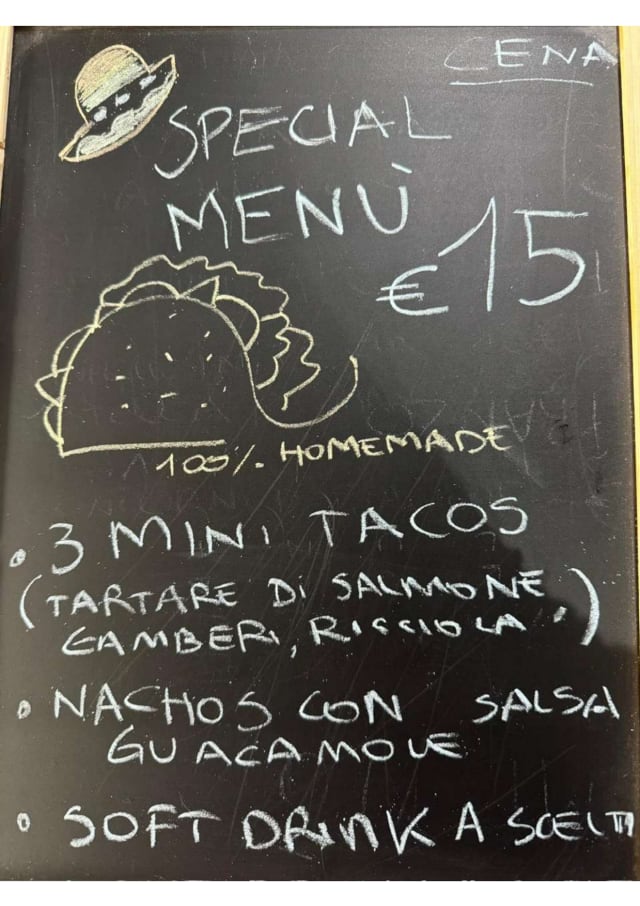 CENA
SPECIAL
MENÙ
€15
100% HOMEMADE
• 3 MINI TACOS
(TARTARE DI SALMONE,
GAMBERI, RICCIOLA.)
• NACHOS CON SALSA
GUACAMOLE
• SOFT DRINK A SCELTA